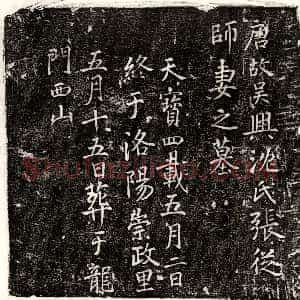 唐故吴興沈氏張從
師妻之墓
天寶四載五月二日
終于洛陽崇政里
五月十五日葬于龍
門西山